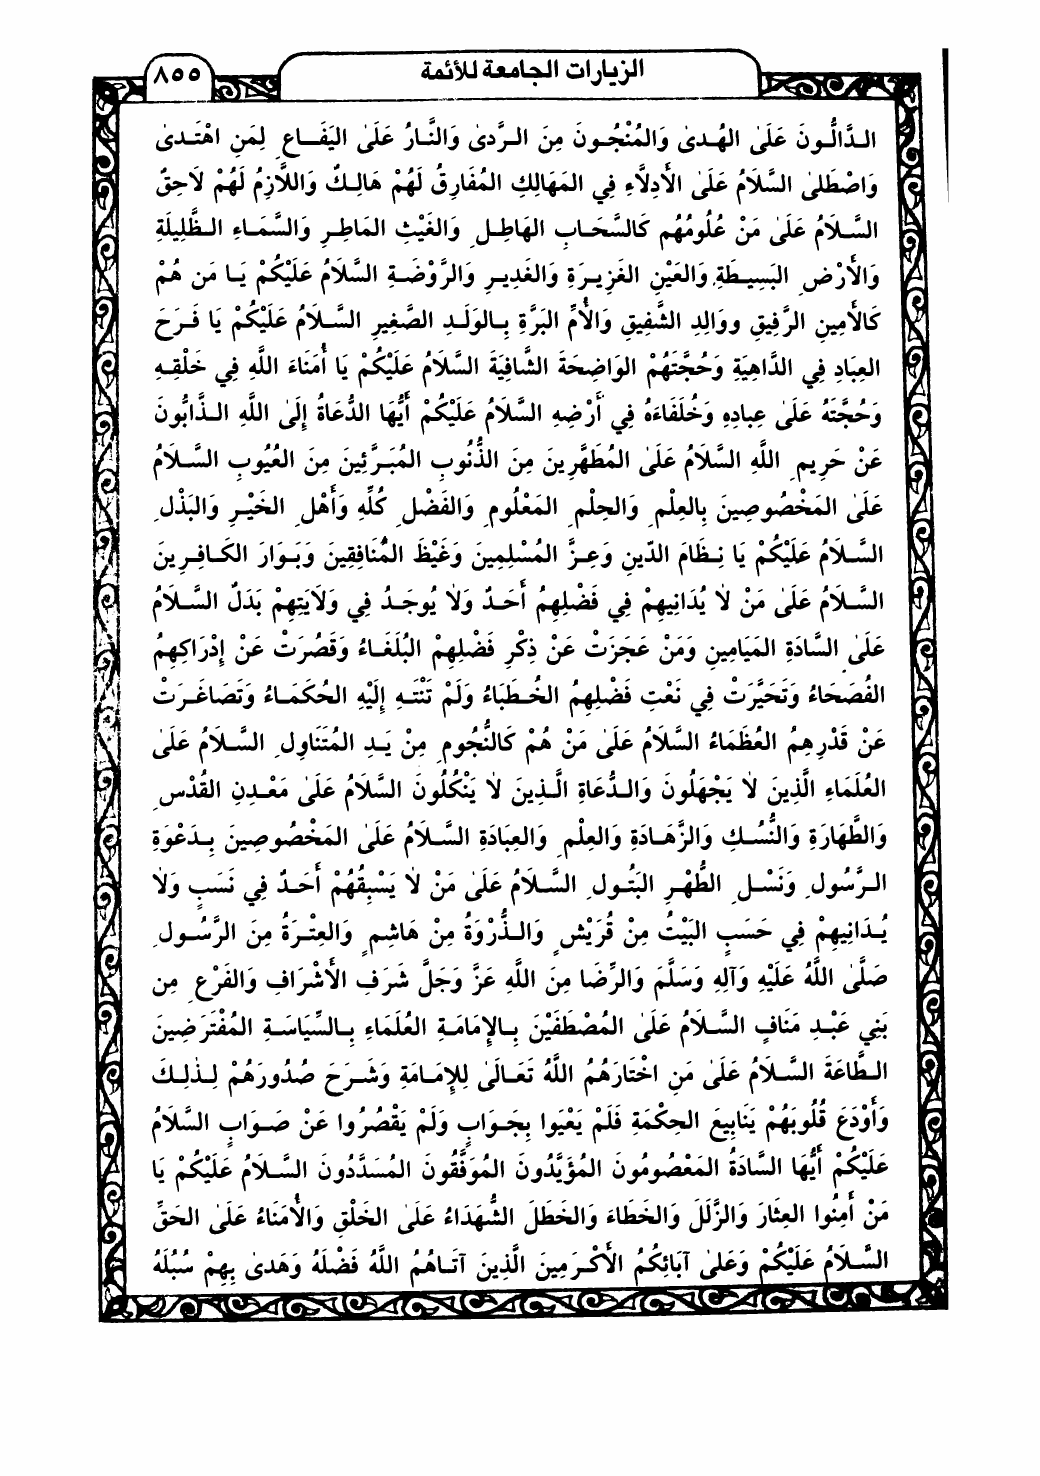 الزيارات الجامعة للأئمة
٨٥٥
الدَّالُّونَ عَلَىٰ الهُدىٰ وَالمُنْجُونَ مِنَ الرَّدىٰ وَالنَّارُ عَلَىٰ اليَفَاعِ لِمَنِ اهْتَدىٰ
وَاصْطَلىٰ السَّلَامُ عَلَىٰ الأَدِلَّاءِ فِي المَهَالِكِ المُفَارِقُ لَهُمْ هَالِكٌ وَاللَّازِمُ لَهُمْ لَاحِقٌ
السَّلَامُ عَلَىٰ مَنْ عُلُومُهُم كَالسَّحَابِ الهَاطِلِ وَالغَيْثِ المَاطِرِ وَالسَّمَاءِ الظَّلِيلَةِ
وَالأَرْضِ البَسِيطَةِ وَالعَيْنِ الغَزِيرَةِ وَالغَدِيرِ وَالرَّوْضَةِ السَّلَامُ عَلَيْكُمْ يَا مَن هُمْ
كَالأَمِينِ الرَّفِيقِ ووَالِدِ الشَّفِيقِ وَالأُمِّ البَرَّةِ بِالوَلَدِ الصَّغِيرِ السَّلَامُ عَلَيْكُمْ يَا فَرَحَ
العِبَادِ فِي الدَّاهِيَةِ وَحُجَّتَهُمْ الوَاضِحَةَ الشَّافِيَةَ السَّلَامُ عَلَيْكُمْ يَا أُمَنَاءَ اللَّهِ فِي خَلْقِهِ
وَحُجَّتَهُ عَلىٰ عِبادِهِ وَخُلَفَاءَهُ فِي أَرْضِهِ السَّلَامُ عَلَيْكُمْ أَيُّهَا الدُّعَاةُ إِلَىٰ اللَّهِ الذَّابُّونَ
عَنْ حَرِيمِ اللَّهِ السَّلَامُ عَلَىٰ المُطَهَّرِينَ مِنَ الذُّنُوبِ المُبَرَّئِينَ مِنَ العُيُوبِ السَّلَامُ
عَلَىٰ المَخْصُوصِينَ بِالعِلْمِ وَالحِلْمِ المَعْلُومِ وَالفَضْلِ كُلِّهِ وَأَهْلِ الخَيْرِ وَالبَذْلِ
السَّلَامُ عَلَيْكُمْ يَا نِظَامَ الدِّينِ وَعِزَّ المُسْلِمِينَ وَغَيْظَ المُنَافِقِينَ وَبَوَارَ الكَافِرِينَ
السَّلَامُ عَلَىٰ مَنْ لَا يُدَانِيهِمْ فِي فَضْلِهِمُ أَحَدٌ وَلَا يُوجَدُ فِي وَلَايَتِهِمْ بَدَلٌ السَّلَامُ
عَلَىٰ السَّادَةِ المَيَامِينِ وَمَنْ عَجَزَتْ عَنْ ذِكْرِ فَضْلِهِمْ البُلَغَاءُ وَقَصُرَتْ عَنْ إِدْرَاكِهِمُ
الفُصَحَاءُ وَتَحَيَّرَتْ فِي نَعْتِ فَضْلِهِمُ الخُطَبَاءُ وَلَمْ تَنْتَهِ إِلَيْهِ الحُكَمَاءُ وَتَصَاغَرَتْ
عَنْ قَدْرِهِمُ العُظَمَاءُ السَّلَامُ عَلَىٰ مَنْ هُمْ كَالنُّجُومِ مِنْ يَدِ المُتَنَاوِلِ السَّلَامُ عَلَىٰ
العُلَمَاءِ الَّذِينَ لَا يَجْهَلُونَ وَالدُّعَاةِ الَّذِينَ لَا يَنْكُلُونَ السَّلَامُ عَلَىٰ مَعْدِنِ القُدْسِ
وَالطَّهَارَةِ وَالنُّسُكِ وَالزَّهَادَةِ وَالعِلْمِ وَالعِبَادَةِ السَّلَامُ عَلَىٰ المَخْصُوصِينَ بِدَعْوَةِ
الرَّسُولِ وَنَسْلِ الطُّهْرِ البَتُولِ السَّلَامُ عَلَىٰ مَنْ لَا يَسْبِقُهُمْ أَحَدٌ فِي نَسَبٍ وَلَا
يُدَانِيهِمْ فِي حَسَبٍ البَيْتُ مِنْ قُرَيْشٍ وَالذُّرْوَةُ مِنْ هَاشِمٍ وَالعِتْرَةُ مِنَ الرَّسُولِ
صَلَّىٰ اللَّهُ عَلَيْهِ وَآلِهِ وَسَلَّمَ وَالرِّضَا مِنَ اللَّهِ عَزَّ وَجَلَّ شَرَفِ الأَشْرَافِ وَالفَرْعِ مِن
بَنِي عَبْدِ مَنَافٍ السَّلَامُ عَلَىٰ المُصْطَفَيْنَ بِالإِمَامَةِ العُلَمَاءِ بِالسِّيَاسَةِ المُفْتَرَضِينَ
الطَّاعَةَ السَّلَامُ عَلَىٰ مَنِ اخْتَارَهُمُ اللَّهُ تَعَالَىٰ لِلإِمَامَةِ وَشَرَحَ صُدُورَهُمْ لِذٰلِكَ
وَأَوْدَعَ قُلُوبَهُمْ يَنَابِيعَ الحِكْمَةِ فَلَمْ يَعْيَوا بِجَوَابٍ وَلَمْ يَقْصُرُوا عَنْ صَوَابٍ السَّلَامُ
عَلَيْكُمْ أَيُّهَا السَّادَةُ المَعْصُومُونَ المُؤَيَّدُونَ المُوَفَّقُونَ المُسَدَّدُونَ السَّلَامُ عَلَيْكُمْ يَا
مَنْ أَمِنُوا العِثَارَ وَالزَّلَلَ وَالخَطَاءَ وَالخَطَلَ الشُّهَدَاءُ عَلَىٰ الخَلْقِ وَالأُمَنَاءُ عَلَىٰ الحَقِّ
السَّلَامُ عَلَيْكُمْ وَعَلىٰ آبَائِكُمُ الأَكْرَمِينَ الَّذِينَ آتَاهُمُ اللَّهُ فَضْلَهُ وَهَدىٰ بِهِمْ سُبُلَهُ